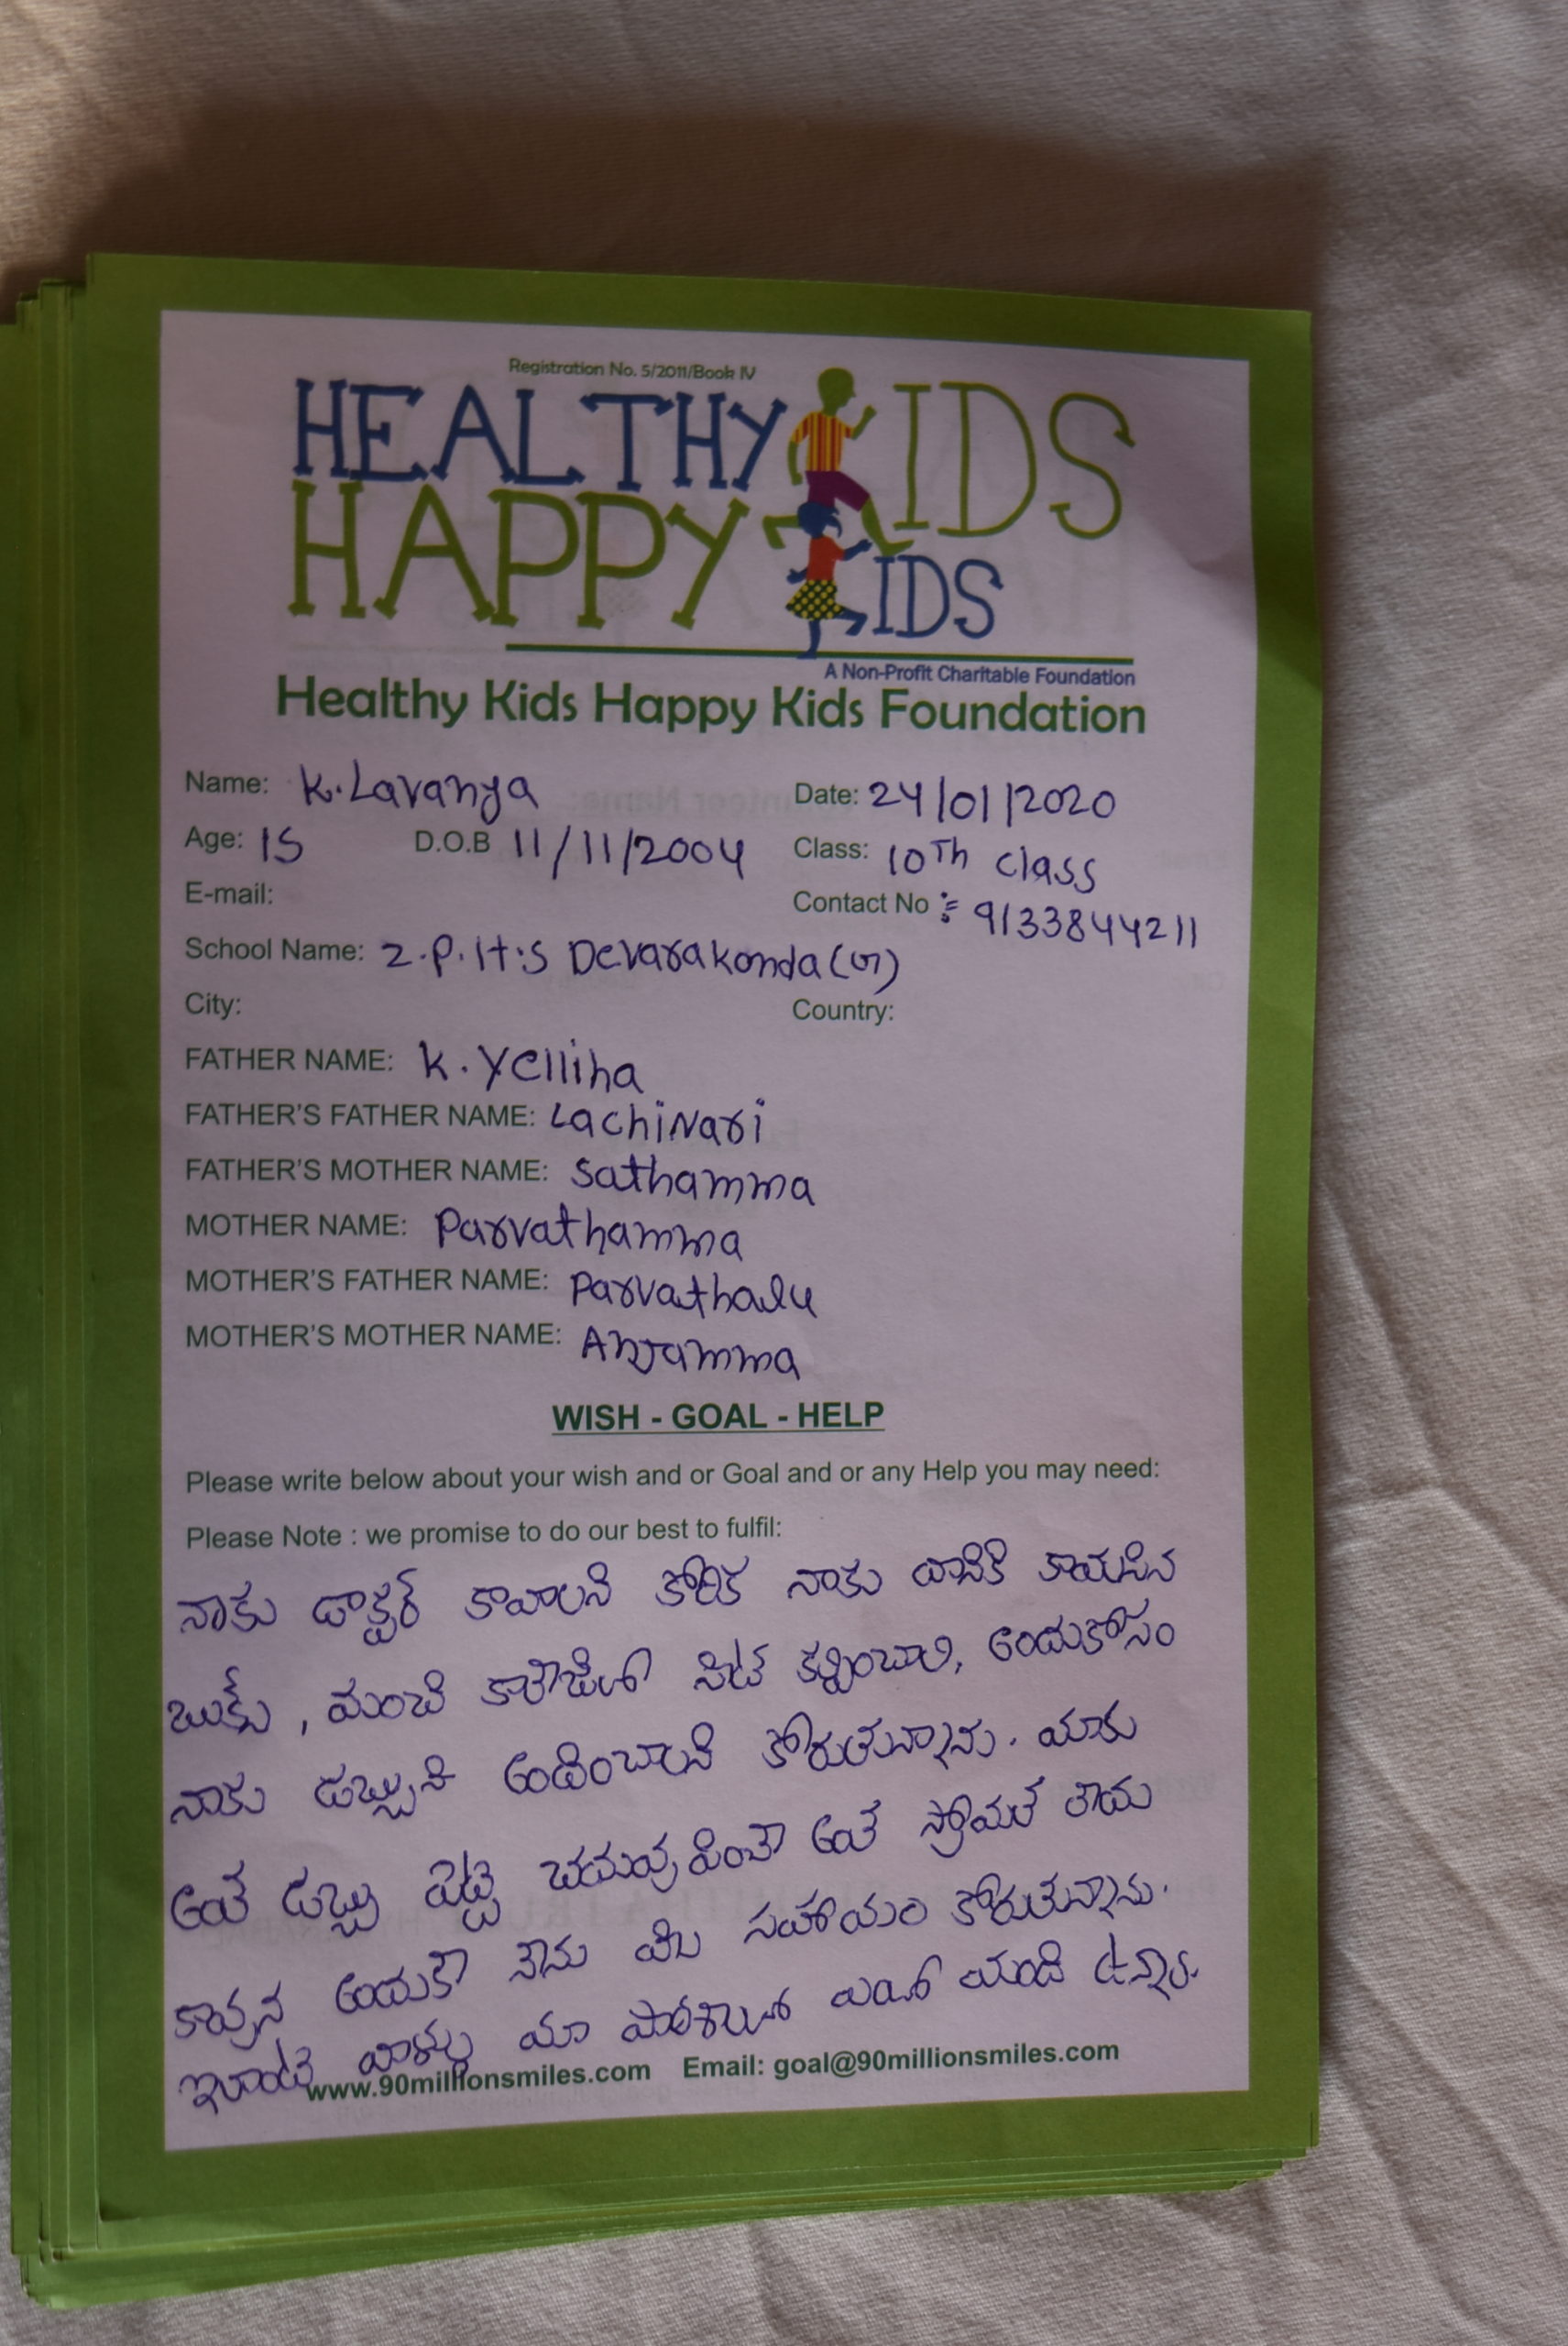 Registration No. 5/2011/Book IV
HEALTHY KIDS
HAPPY KIDS
A Non-Profit Charitable Foundation
Healthy Kids Happy Kids Foundation
Name: K. Lavanya Date: 24/01/2020
Age: 15 D.O.B 11/11/2004 Class: 10Th class
E-mail: Contact No : 9133844211
School Name: Z.P.H.S Devarakonda (G)
City: Country:
FATHER NAME: K. Yelliha
FATHER'S FATHER NAME: LachiNari
FATHER'S MOTHER NAME: Sathamma
MOTHER NAME: Parvathamma
MOTHER'S FATHER NAME: Parvathalu
MOTHER'S MOTHER NAME: Anjamma
WISH - GOAL - HELP
Please write below about your wish and or Goal and or any Help you may need:
Please Note : we promise to do our best to fulfil:
నాకు డాక్టర్ కావాలని కోరిక నాకు దానికి కావసిన
బుక్స్ , మంచి కాలేజిలో సీట్ కల్పించాలి, అందుకోసం
నాకు డబ్బుని అందించాలని కోరుతున్నాను. మాకు
అంతే డబ్బు పెట్టి చదువుపించే అంతే స్తోమతే లేదు
కావున అందుకే నేను మీ సహాయం కోరుతున్నాను.
ఇలాంటి వాళ్ళు మా పాఠశాలలో ఎంతో మంది ఉన్నారు.
www.90millionsmiles.com Email: goal@90millionsmiles.com